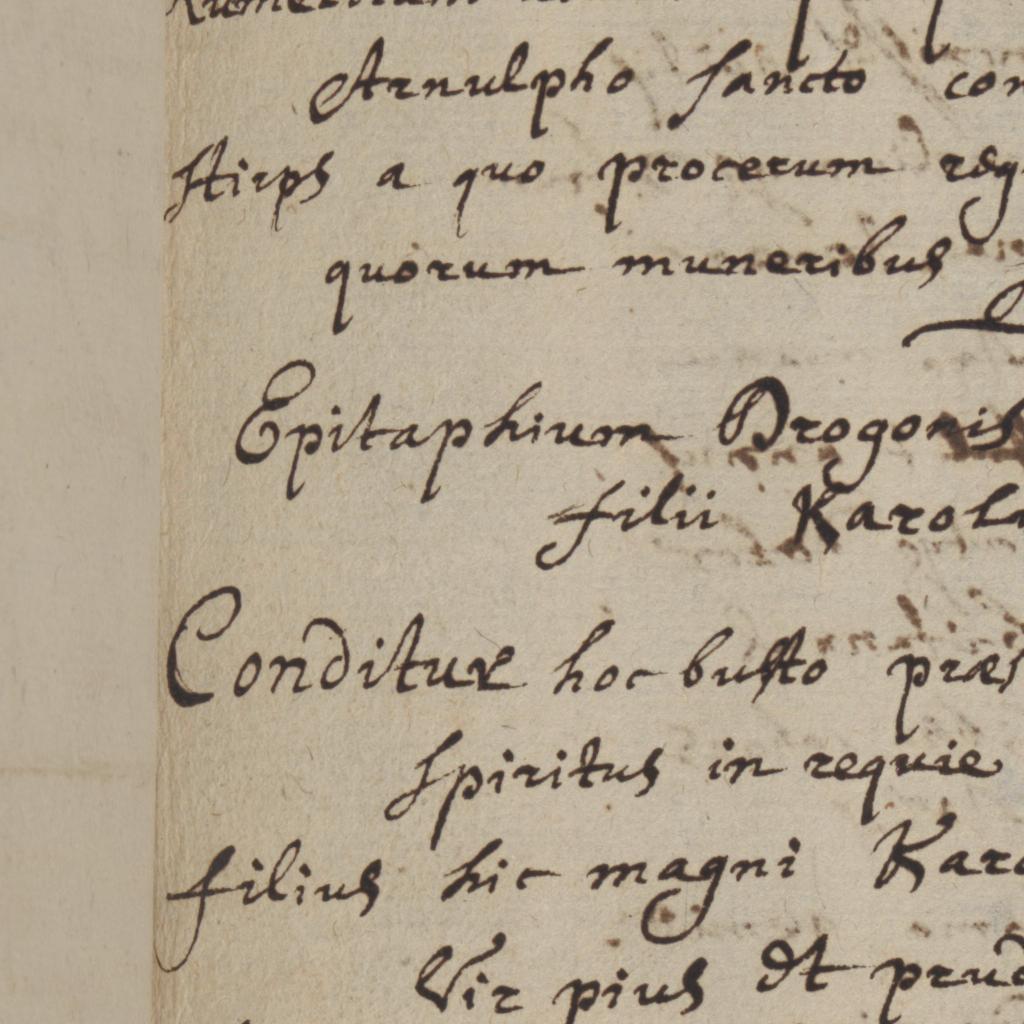 Arnulpho sancto con
stirps a quo procerum reg
quorum muneribus
Epitaphium Drogonis
filii Karol
Conditur hoc busto præs
spiritus in requie
filius hic magni Karo
Vir pius et prud